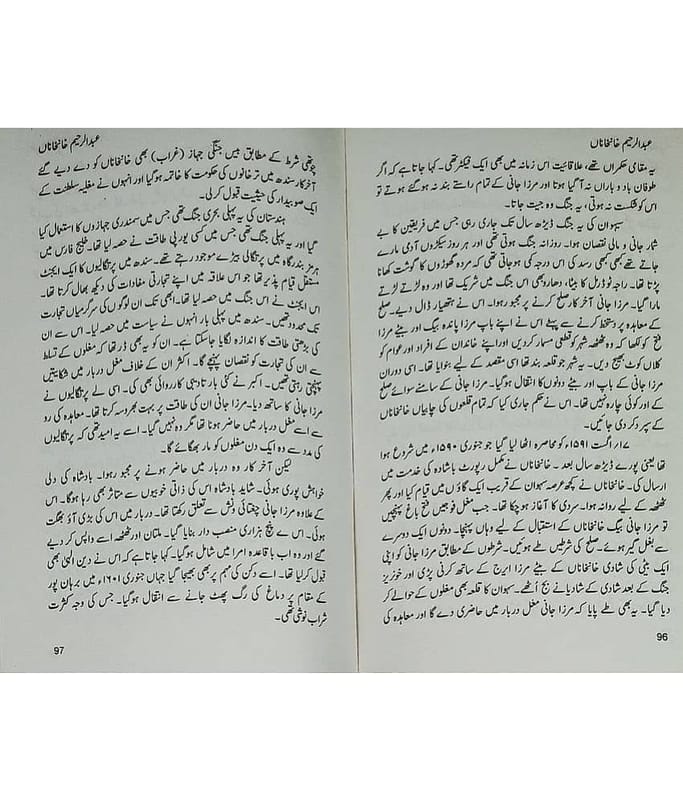 عبدالرحیم خانخاناں
یہ مقامی حکمراں تھے، علاقائیت اس زمانہ میں بھی ایک فیکٹر تھی۔ کہا جاتا ہے کہ اگر
طوفان باد و باراں نہ آ گیا ہوتا اور مرزا جانی کے تمام راستے بند نہ ہو گئے ہوتے تو
اس کو شکست نہ ہوتی، یہ جنگ وہ جیت جاتا۔
سیہوان کی یہ جنگ ڈیڑھ سال تک جاری رہی جس میں فریقین کا بے
شمار جانی و مالی نقصان ہوا۔ روزانہ جنگ ہوتی تھی اور ہر روز سیکڑوں آدمی مارے
جاتے تھے کبھی کبھی رسد کی اس درجہ کمی ہو جاتی تھی کہ مردہ گھوڑوں کا گوشت کھانا
پڑتا تھا۔ راجہ ٹوڈرمل کا بیٹا، دھارو بھی اس جنگ میں شریک تھا اور وہ لڑتے لڑتے
مارا گیا۔ مرزا جانی آخر کار صلح کرنے پر مجبور ہوا۔ اس نے ہتھیار ڈال دیے۔ صلح
کے معاہدہ پر دستخط کرنے سے پہلے اس نے اپنے باپ مرزا پائندہ بیگ اور بیٹے مرزا
فتح کو لکھا کہ وہ ٹھٹھہ شہر کو قطعی مسمار کر دیں اور اپنے خاندان کے افراد اور عوام کو
کلاں کوٹ بھیج دیں۔ یہ شہر جو قلعہ بند تھا اسی مقصد کے لیے بنوایا تھا۔ اسی دوران
مرزا جانی کے باپ اور بیٹے دونوں کا انتقال ہو گیا۔ مرزا جانی کے سامنے سوائے صلح
کے اور کوئی چارہ نہیں تھا۔ اس نے حکم جاری کیا کہ تمام قلعوں کی چابیاں خانخاناں
کے سپرد کر دی جائیں۔
۱۷ اگست ۱۵۹۱ء کو محاصرہ اٹھا لیا گیا جو جنوری ۱۵۹۰ء میں شروع ہوا
تھا یعنی پورے ڈیڑھ سال بعد۔ خانخاناں نے مکمل رپورٹ بادشاہ کی خدمت میں
ارسال کی۔ خانخاناں نے کچھ عرصہ سیہوان کے قریب ایک گاؤں میں قیام کیا اور پھر
ٹھٹھہ کے لیے روانہ ہوا۔ سردی کا آغاز ہو چکا تھا۔ جب مغل فوجیں فتح باغ پہنچیں
تو مرزا جانی بیگ خانخاناں کے استقبال کے لیے وہاں پہنچا۔ دونوں ایک دوسرے
سے بغل گیر ہوئے۔ صلح کی شرطیں طے ہوئیں۔ شرطوں کے مطابق مرزا جانی کو اپنی
ایک بیٹی کی شادی خانخاناں کے بیٹے مرزا ایرج کے ساتھ کرنی پڑی اور خونریز
جنگ کے بعد شادی کے شادیانے بج اٹھے۔ سیہوان کا قلعہ بھی مغلوں کے حوالے کر
دیا گیا۔ یہ بھی طے پایا کہ مرزا جانی مغل دربار میں حاضری دے گا اور معاہدہ کی
96
عبدالرحیم خانخاناں
چوتھی شرط کے مطابق بیس جنگی جہاز (غراب) بھی خانخاناں کو دے دیے گئے
آخر کار سندھ میں ترخانوں کی حکومت کا خاتمہ ہو گیا اور انہوں نے مغلیہ سلطنت کے
ایک صوبیدار کی حیثیت قبول کر لی۔
ہندستان کی یہ پہلی بحری جنگ تھی جس میں سمندری جہازوں کا استعمال کیا
گیا اور یہ پہلی جنگ تھی جس میں کسی یورپی طاقت نے حصہ لیا تھا۔ خلیج فارس میں
ہرمز بندرگاہ میں پرتگالی بیڑے موجود رہتے تھے۔ سندھ میں پرتگالیوں کا ایک ایجنٹ
مستقل قیام پذیر تھا جو اس علاقہ میں اپنے تجارتی مفادات کی دیکھ بھال کرتا تھا۔
اس ایجنٹ نے اس جنگ میں حصہ لیا تھا۔ ابھی تک ان لوگوں کی سرگرمیاں تجارت
تک محدود تھیں۔ سندھ میں پہلی بار انہوں نے سیاست میں حصہ لیا۔ اس سے ان
کی بڑھتی طاقت کا اندازہ لگایا جا سکتا ہے۔ ان کو یہ بھی ڈر تھا کہ مغلوں کے تسلط
سے ان کی تجارت کو نقصان پہنچے گا۔ اکثر ان کے خلاف مغل دربار میں شکایتیں
پہنچتی رہتی تھیں۔ اکبر نے کئی بار تادیبی کارروائی بھی کی۔ اسی لیے پرتگالیوں نے
مرزا جانی کا ساتھ دیا۔ مرزا جانی ان کی طاقت پر بہت بھروسہ کرتا تھا۔ معاہدہ کی رو
سے اسے مغل دربار میں حاضر ہونا تھا مگر وہ نہیں گیا۔ اسے یہ امید تھی کہ پرتگالیوں
کی مدد سے وہ ایک دن مغلوں کو مار بھگائے گا۔
لیکن آخر کار وہ دربار میں حاضر ہونے پر مجبور ہوا۔ بادشاہ کی دلی
خواہش پوری ہوئی۔ شاید بادشاہ اس کی ذاتی خوبیوں سے متاثر بھی رہا ہوگا۔ اس
کے علاوہ مرزا جانی چغتائی نسل سے تعلق رکھتا تھا۔ دربار میں اس کی بڑی آؤ بھگت
ہوئی۔ اسے پنج ہزاری منصب دار بنایا گیا۔ ملتان اور ٹھٹھہ اسے واپس کر دیے
گئے اور وہ اب باقاعدہ امرا میں شامل ہو گیا۔ کہا جاتا ہے کہ اس نے دین الٰہی بھی
قبول کر لیا تھا۔ اسے دکن کی مہم پر بھی بھیجا گیا جہاں جنوری ۱۶۰۱ء میں برہان پور
کے مقام پر دماغ کی رگ پھٹ جانے سے انتقال ہو گیا۔ جس کی وجہ کثرت
شراب نوشی تھی۔
97